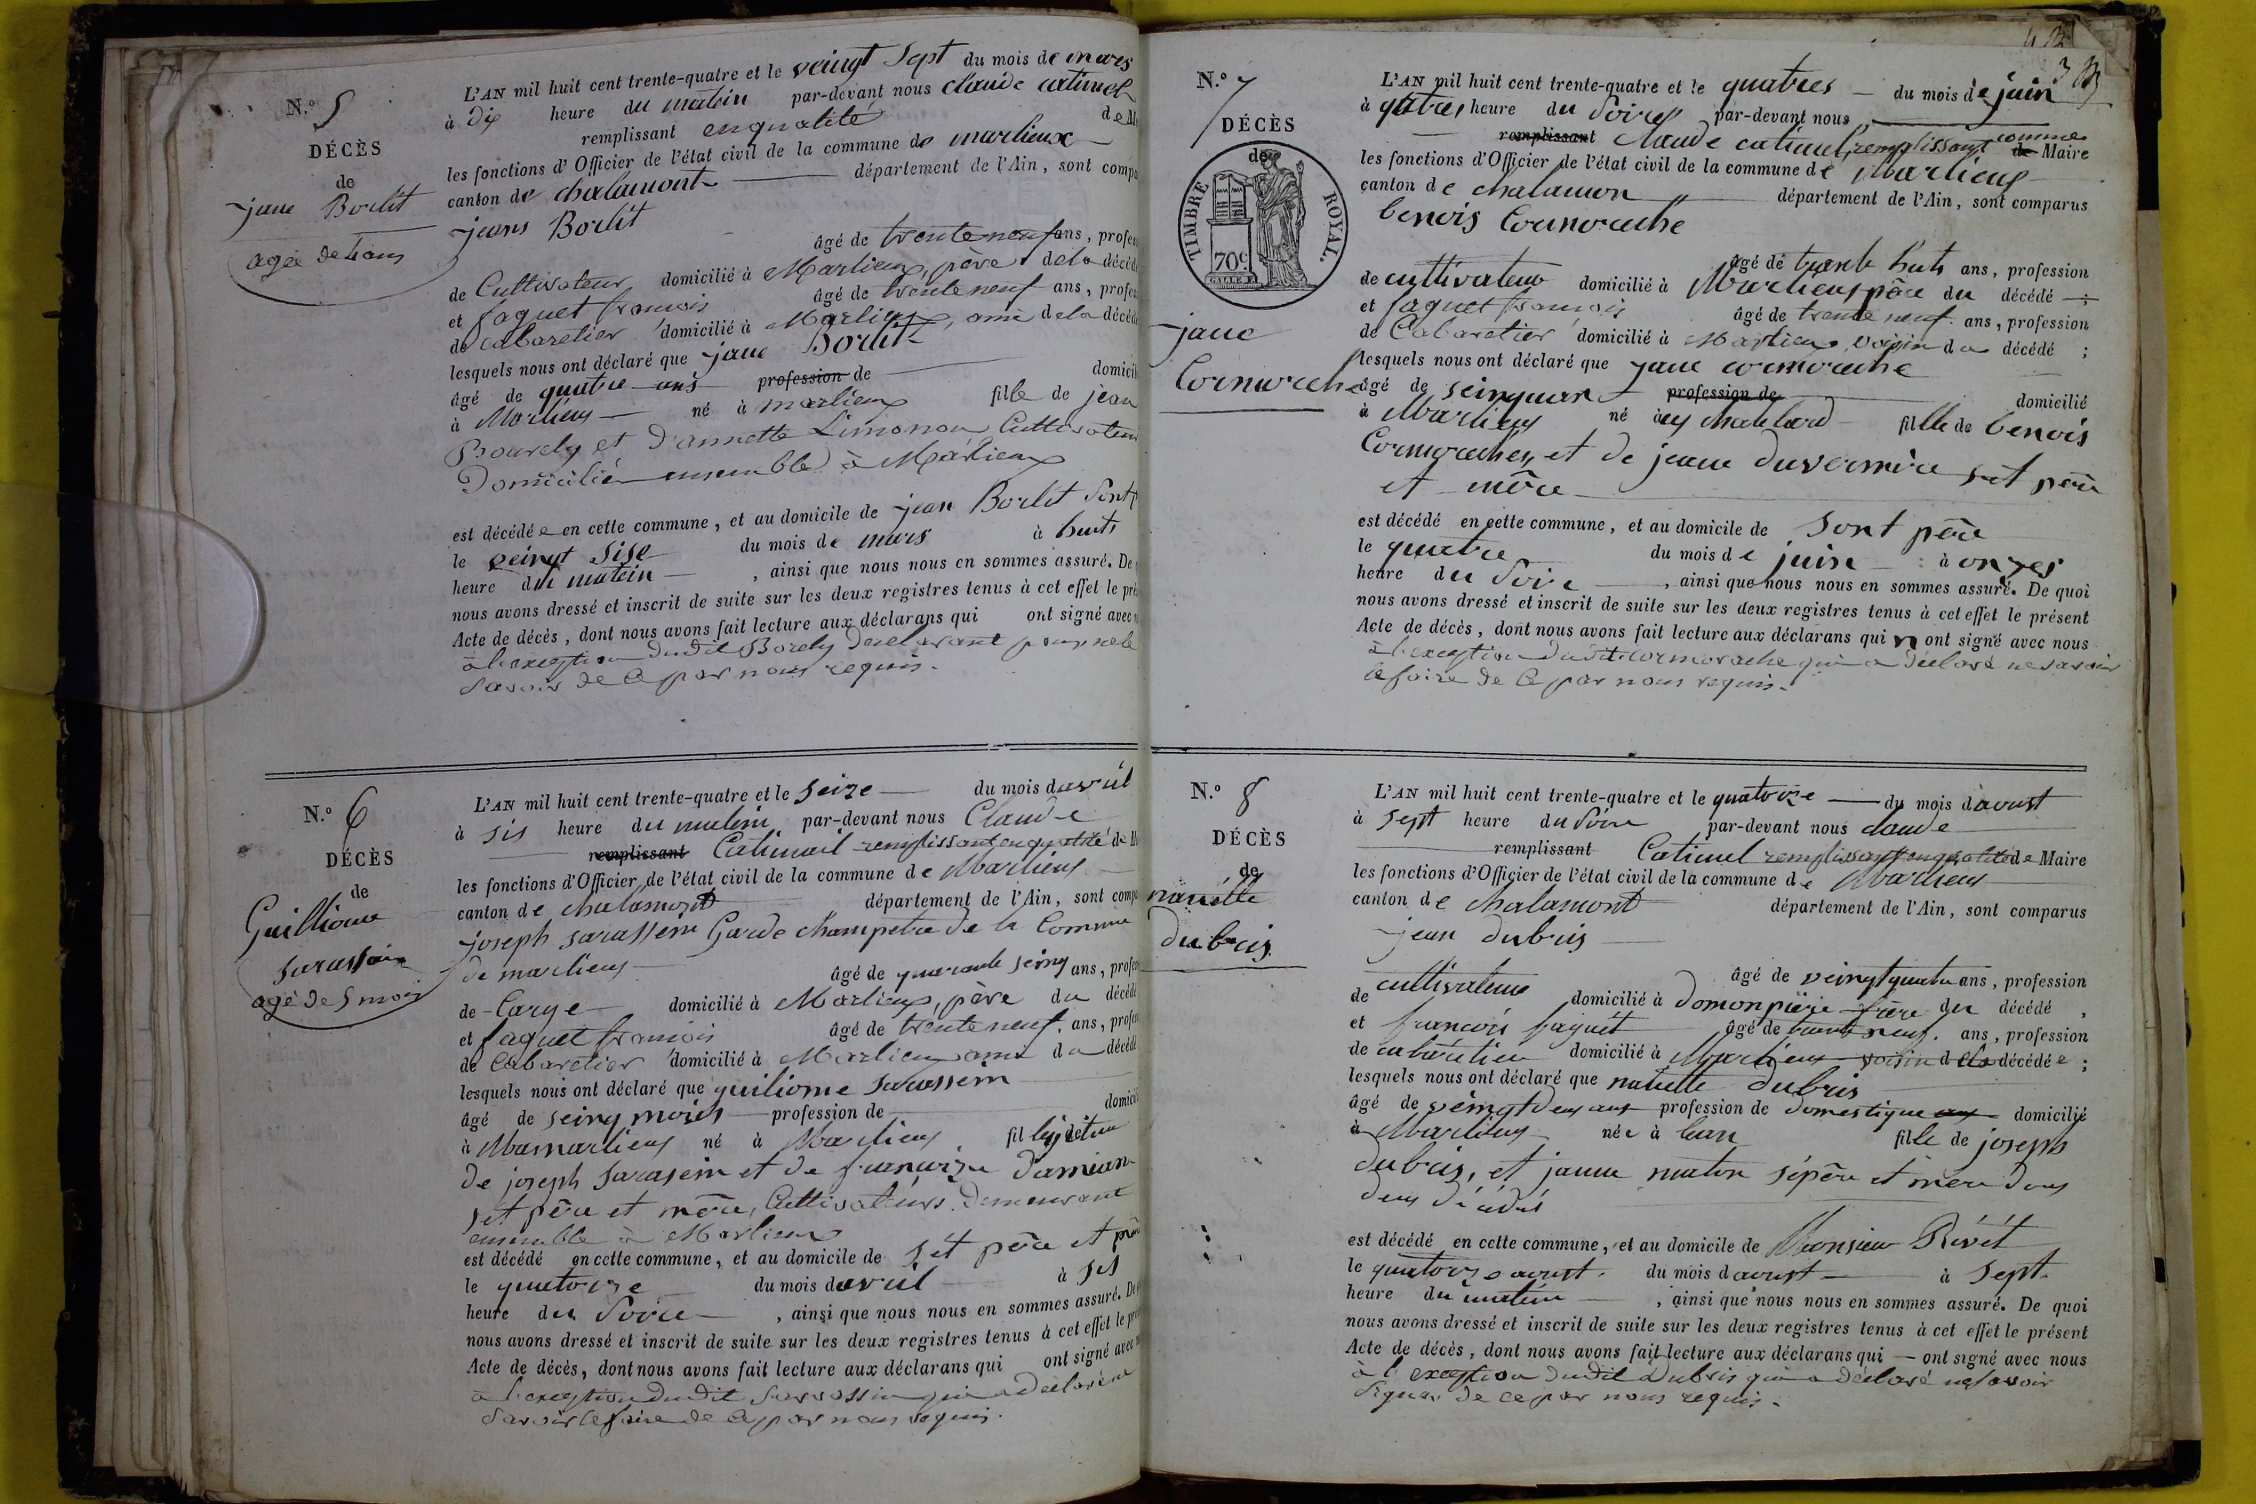 N.o 5
DÉCÈS
de
jane Borlit
agée de 4 ans
L'AN mil huit cent trente-quatre et le veingt sept du mois de mars
à dix heure du matein par-devant nous claude catimel
remplissant enqualité de M
les fonctions d'Officier de l'état civil de la commune de marlieux
canton de chalamont département de l'Ain, sont compa
jeans Borlit
âgé de trente neuf ans, profes
de Cultivateur domicilié à Marlieux, père de la décéd
et faquet francois âgé de trente neuf ans, profes
de Cabaretier domicilié à Marlieux, ami de la décéd
lesquels nous ont déclaré que jane Borlit
âgé de quatre ans profession de domicil
à Marlieux né à marlieux fille de jean
Bourely et d'annette Limonon Cultivateur
Domicilié ensemble à Marlieux
est décédée en cette commune, et au domicile de jean Borlit Sont p
le veingt sise du mois de mars à huits
heure du matein , ainsi que nous nous en sommes assuré. De
nous avons dressé et inscrit de suite sur les deux registres tenus à cet effet le pré
Acte de décès, dont nous avons fait lecture aux déclarans qui ont signé avec n
à l'exception dudit Borely declarant pour ne le
Savoir de Ce par nous requis.
N.o 6
DÉCÈS
de
Guilliome
sarassain
agé de 5 mois
L'AN mil huit cent trente-quatre et le seize du mois davril
à sis heure du matein par-devant nous Claude
remplissant Catimail remplissant enqualité de M
les fonctions d'Officier de l'état civil de la commune de Marlieux
canton de chalamont département de l'Ain, sont compa
joseph sarassein Garde champetre de la Commune
de marlieux âgé de quarante seinq ans, profes
de Carge domicilié à Marlieux, père du décédé
et faquet francois âgé de trente neuf ans, profes
de Cabaretier domicilié à Marlieux ami du décédé
lesquels nous ont déclaré que guiliome sarassein
âgé de seinq moies profession de domicilié
à Mamarlieux né à Marlieux fil
de joseph sarasein et de francoize damian
set père et mère, Cultivateurs Demeurant
ensemble à Marlieux
est décédé en cette commune, et au domicile de set père et
le quatorze du mois davril à sis
heure du Soire , ainsi que nous nous en sommes assuré. De
nous avons dressé et inscrit de suite sur les deux registres tenus à cet effet le pré
Acte de décès, dont nous avons fait lecture aux déclarans qui ont signé avec n
à l'exception dudit Sarrassin qui a déclaré ne
Savoir le faire de Ce par nous requis.
N.o 7
DÉCÈS
de
TIMBRE ROYAL.
70c
jane
Cormorache
L'AN mil huit cent trente-quatre et le quatres du mois de juin
à quatres heure du Soires par-devant nous
remplissant Claude catimel, remplissant comme de Maire
les fonctions d'Officier de l'état civil de la commune de Marlieux
canton de chalamon département de l'Ain, sont comparus
benois Cormorache
âgé de trente huits ans, profession
de cultivateur domicilié à Marlieux père du décédé ;
et faquet francois âgé de trente neuf ans, profession
de Cabaretier domicilié à Marlieux, voisin du décédé ;
lesquels nous ont déclaré que jane cormorache
âgé de seinquan profession de domicilié
à Marlieux né à chatelard fille de benois
Cormoraches, et de jeane duvernière set père
et mère
est décédé en cette commune, et au domicile de Sont père
le quatre du mois de juin à onzes
heure du Soire , ainsi que nous nous en sommes assuré. De quoi
nous avons dressé et inscrit de suite sur les deux registres tenus à cet effet le présent
Acte de décès, dont nous avons fait lecture aux déclarans qui n ont signé avec nous
à l'exception dudit Cormorache qui a déclaré ne savoir
le faire de Ce par nous requis.
N.o 8
DÉCÈS
de
nanette
dubris
L'AN mil huit cent trente-quatre et le quatorze du mois daoust
à sept heure du Soire par-devant nous claude
remplissant Catimel remplissant enqualité de Maire
les fonctions d'Officier de l'état civil de la commune de Marlieux
canton de chalamont département de l'Ain, sont comparus
jean dubris
âgé de veingtquatre ans, profession
de cultivateur domicilié à domonpière frère du décédé ,
et francois faquet âgé de trente neuf ans, profession
de cabaretier domicilié à Marlieux voisin de la décédée ;
lesquels nous ont déclaré que natette dubris
âgé de veingt deux ans profession de domestique domicilié
à Marlieux née à lean fille de joseph
dubris, et janne maton sépère et mère dous
deux décédés
est décédé en cette commune, et au domicile de Monsieur Révét
le quatorze aoust du mois daoust à sept
heure du matein , ainsi que nous nous en sommes assuré. De quoi
nous avons dressé et inscrit de suite sur les deux registres tenus à cet effet le présent
Acte de décès, dont nous avons fait lecture aux déclarans qui ont signé avec nous
à l'exception dudit Dubris qui a déclaré ne savoir
Signer de ce par nous requis.